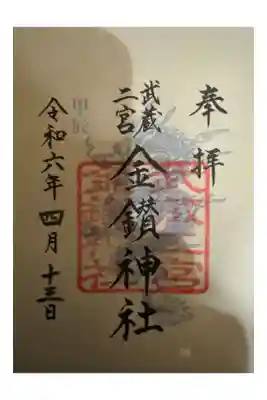 奉拝
武蔵
二宮
金鑚神社
甲辰
令和六年四月十三日